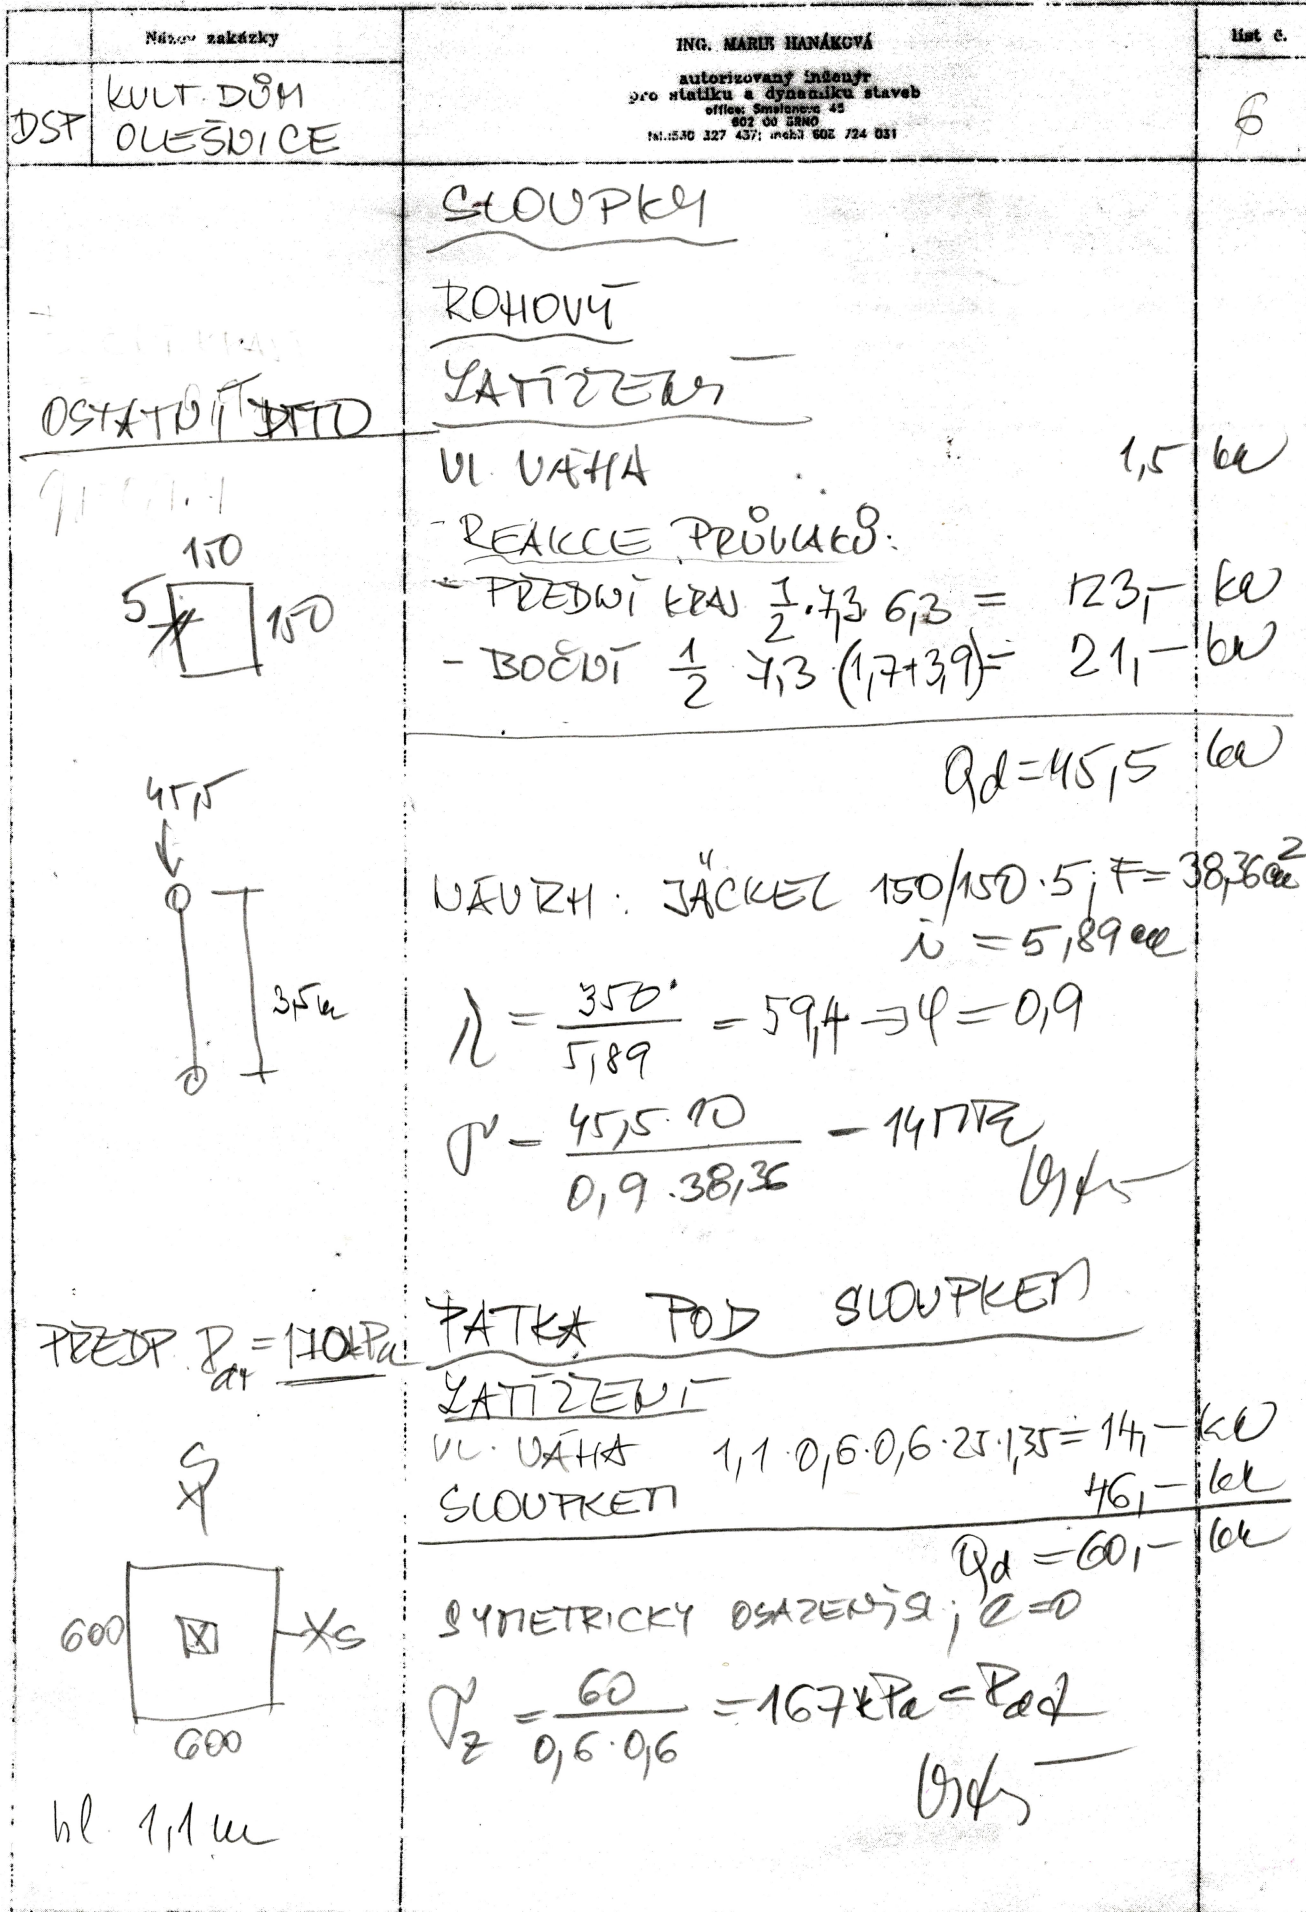 Název zakázky
ING. MARIE HANÁKOVÁ
list č.
autorizovaný inženýr
pro statiku a dynamiku staveb
office: Smetanova 45
602 00 BRNO
tel.:530 327 437; mobil 602 724 031
DSP
KULT. DŮM
OLEŠNICE
6
SLOUPKY
ROHOVÝ
ZATÍŽENÍ
OSTATNÍ DITTO
VL. VÁHA 1,5 kN
- REAKCE PRŮVLAKŮ:
- PŘEDNÍ KRAJ 1/2 · 7,3 · 6,3 = 23,- kN
- BOČNÍ 1/2 · 7,3 · (1,7+3,9) = 21,- kN
150
5
150
Qd = 45,5 kN
45,5
3,5m
NÁVRH: JÄCKEL 150/150·5; F = 38,36 cm²
i = 5,89 cm
λ = 350/5,89 = 59,4 ⇒ φ = 0,9
σ = 45,5·10/0,9·38,36 = 14 MPa
PATKA POD SLOUPKEM
PŘEDP. Rdt = 170 kPa
ZATÍŽENÍ
VL. VÁHA 1,1·0,6·0,6·25·1,35 = 14,- kN
SLOUPKEM 46,- kN
Qd = 60,- kN
SYMETRICKY OSAZENÝ SL; e = 0
σz = 60/0,6·0,6 = 167 kPa = Rdt
S
600
X S
600
hl. 1,1 m